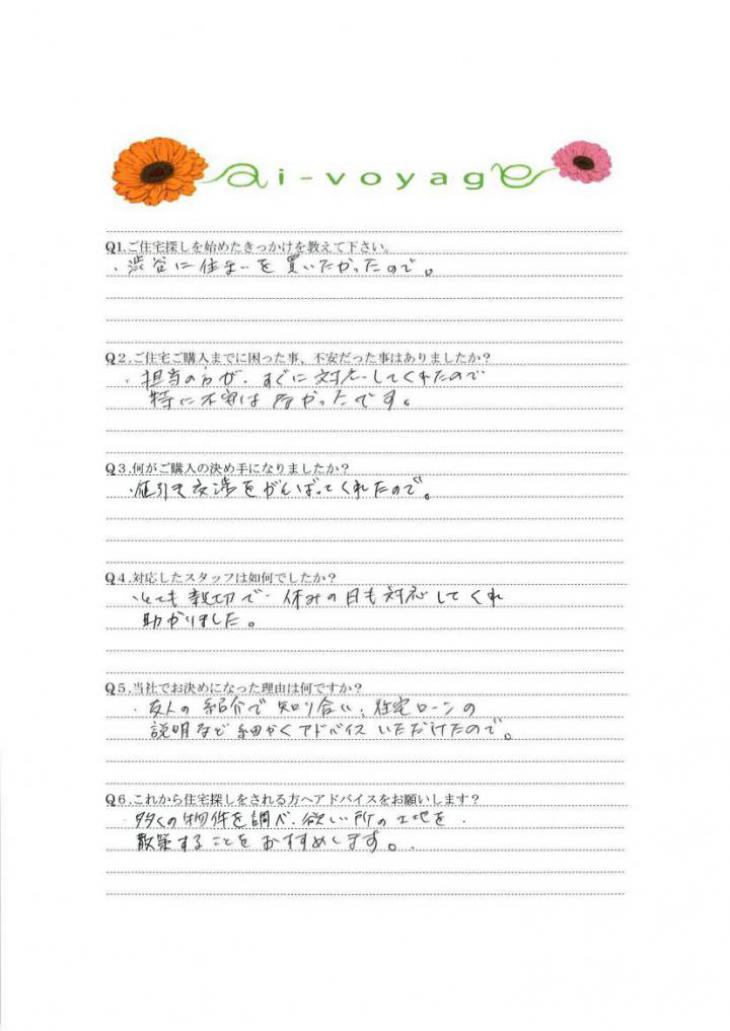 ai-voyage
Q1.ご住宅探しを始めたきっかけを教えて下さい。
・渋谷に住まいを買いたかったので。
Q2.ご住宅ご購入までに困った事、不安だった事はありましたか？
・担当の方が、すぐに対応してくれたので
特に不安は なかったです。
Q3.何がご購入の決め手になりましたか？
・値引き交渉をがんばってくれたので。
Q4.対応したスタッフは如何でしたか？
・とても親切で、休みの日も対応してくれ
助かりました。
Q5.当社でお決めになった理由は何ですか？
・友人の紹介で知り合い、住宅ローンの
説明など細かくアドバイスいただけたので。
Q6.これから住宅探しをされる方へアドバイスをお願いします？
・多くの物件を調べ、欲しい所の土地を
散策することをおすすめします。